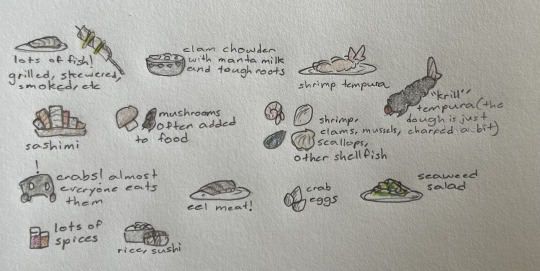 lots of fish!
grilled, skewered,
smoked, etc
clam chowder
with manta milk
and tough roots
shrimp tempura
"krill"
tempura (the
dough is just
charred a bit)
sashimi
mushrooms
often added
to food
shrimp,
clams, mussels,
scallops,
other shellfish
!
crabs! almost
everyone eats
them
eel meat!
crab
eggs
seaweed
salad
lots of
spices
rice, sushi